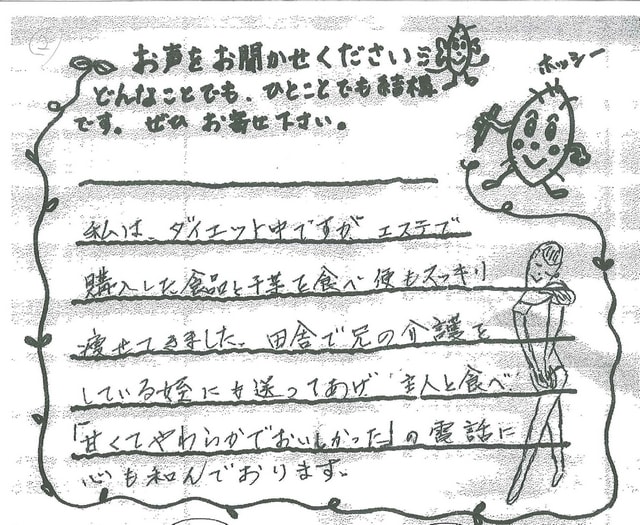 お声をお聞かせください
どんなことでも、ひとことでも結構
です。ぜひ お寄せ下さい。
ホッシー
私は、ダイエット中ですが、エステで
購入した食品と干葉を食べ 便もスッキリ
痩せてきました。田舎で兄の介護を
している姪にも送ってあげ 主人と食べ
「甘くてやわらかでおいしかった」の電話に
心も和んでおります。